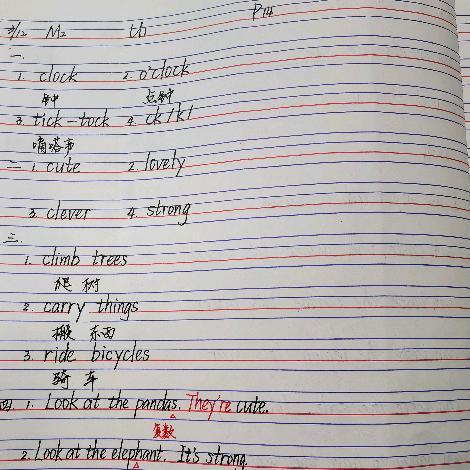 3/12 M2 U1 P14
一.
1. clock 2. o'clock
钟 点钟
3. tick-tock 4. ck/k/
嘀嗒声
二. 1. cute 2. lovely
3. clever 4. strong
三.
1. climb trees
爬 树
2. carry things
搬 东西
3. ride bicycles
骑 车
四. 1. Look at the pandas. They're cute.
复数
2. Look at the elephant. It's strong.